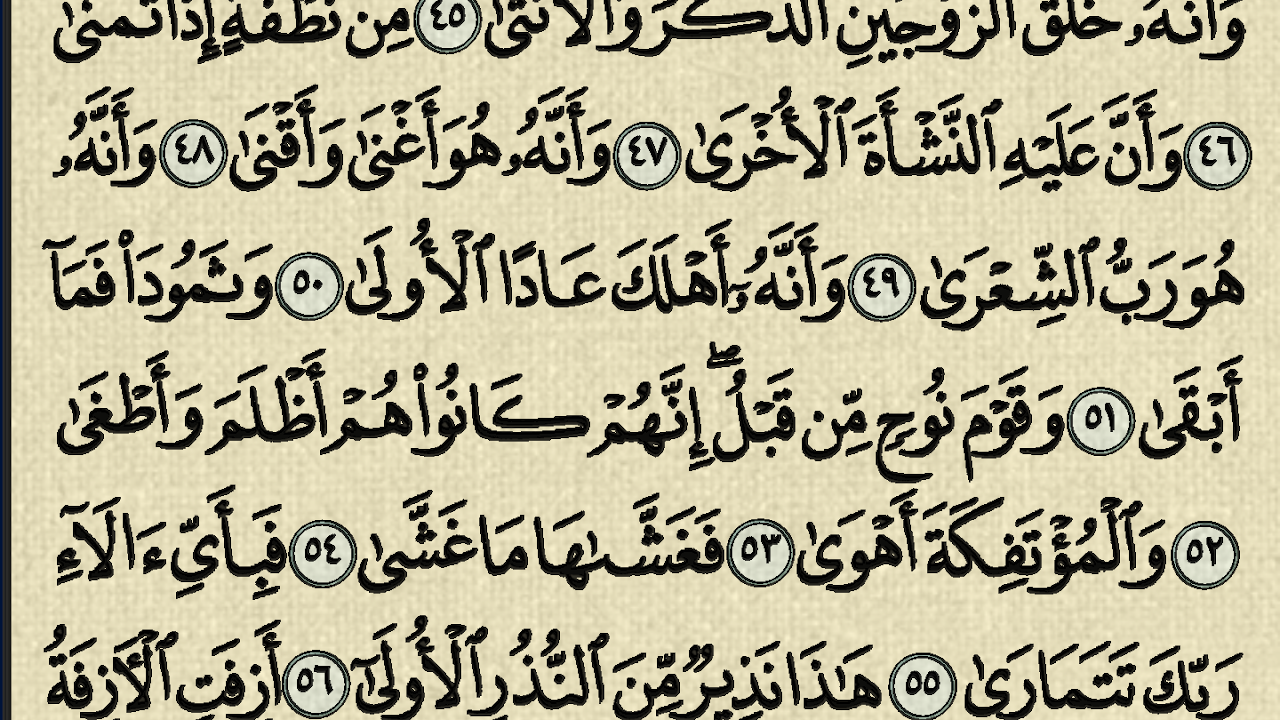 وَأَنَّهُۥ خَلَقَ ٱلزَّوْجَيْنِ ٱلذَّكَرَ وَٱلْأُنثَىٰ ٤٥ مِن نُّطْفَةٍ إِذَا تُمْنَىٰ
٤٦ وَأَنَّ عَلَيْهِ ٱلنَّشْأَةَ ٱلْأُخْرَىٰ ٤٧ وَأَنَّهُۥ هُوَ أَغْنَىٰ وَأَقْنَىٰ ٤٨ وَأَنَّهُۥ
هُوَ رَبُّ ٱلشِّعْرَىٰ ٤٩ وَأَنَّهُۥٓ أَهْلَكَ عَادًا ٱلْأُولَىٰ ٥٠ وَثَمُودَا۟ فَمَآ
أَبْقَىٰ ٥١ وَقَوْمَ نُوحٍ مِّن قَبْلُ ۖ إِنَّهُمْ كَانُوا۟ هُمْ أَظْلَمَ وَأَطْغَىٰ
٥٢ وَٱلْمُؤْتَفِكَةَ أَهْوَىٰ ٥٣ فَغَشَّىٰهَا مَا غَشَّىٰ ٥٤ فَبِأَىِّ ءَالَآءِ
رَبِّكَ تَتَمَارَىٰ ٥٥ هَـٰذَا نَذِيرٌ مِّنَ ٱلنُّذُرِ ٱلْأُولَىٰٓ ٥٦ أَزِفَتِ ٱلْـَٔازِفَةُ